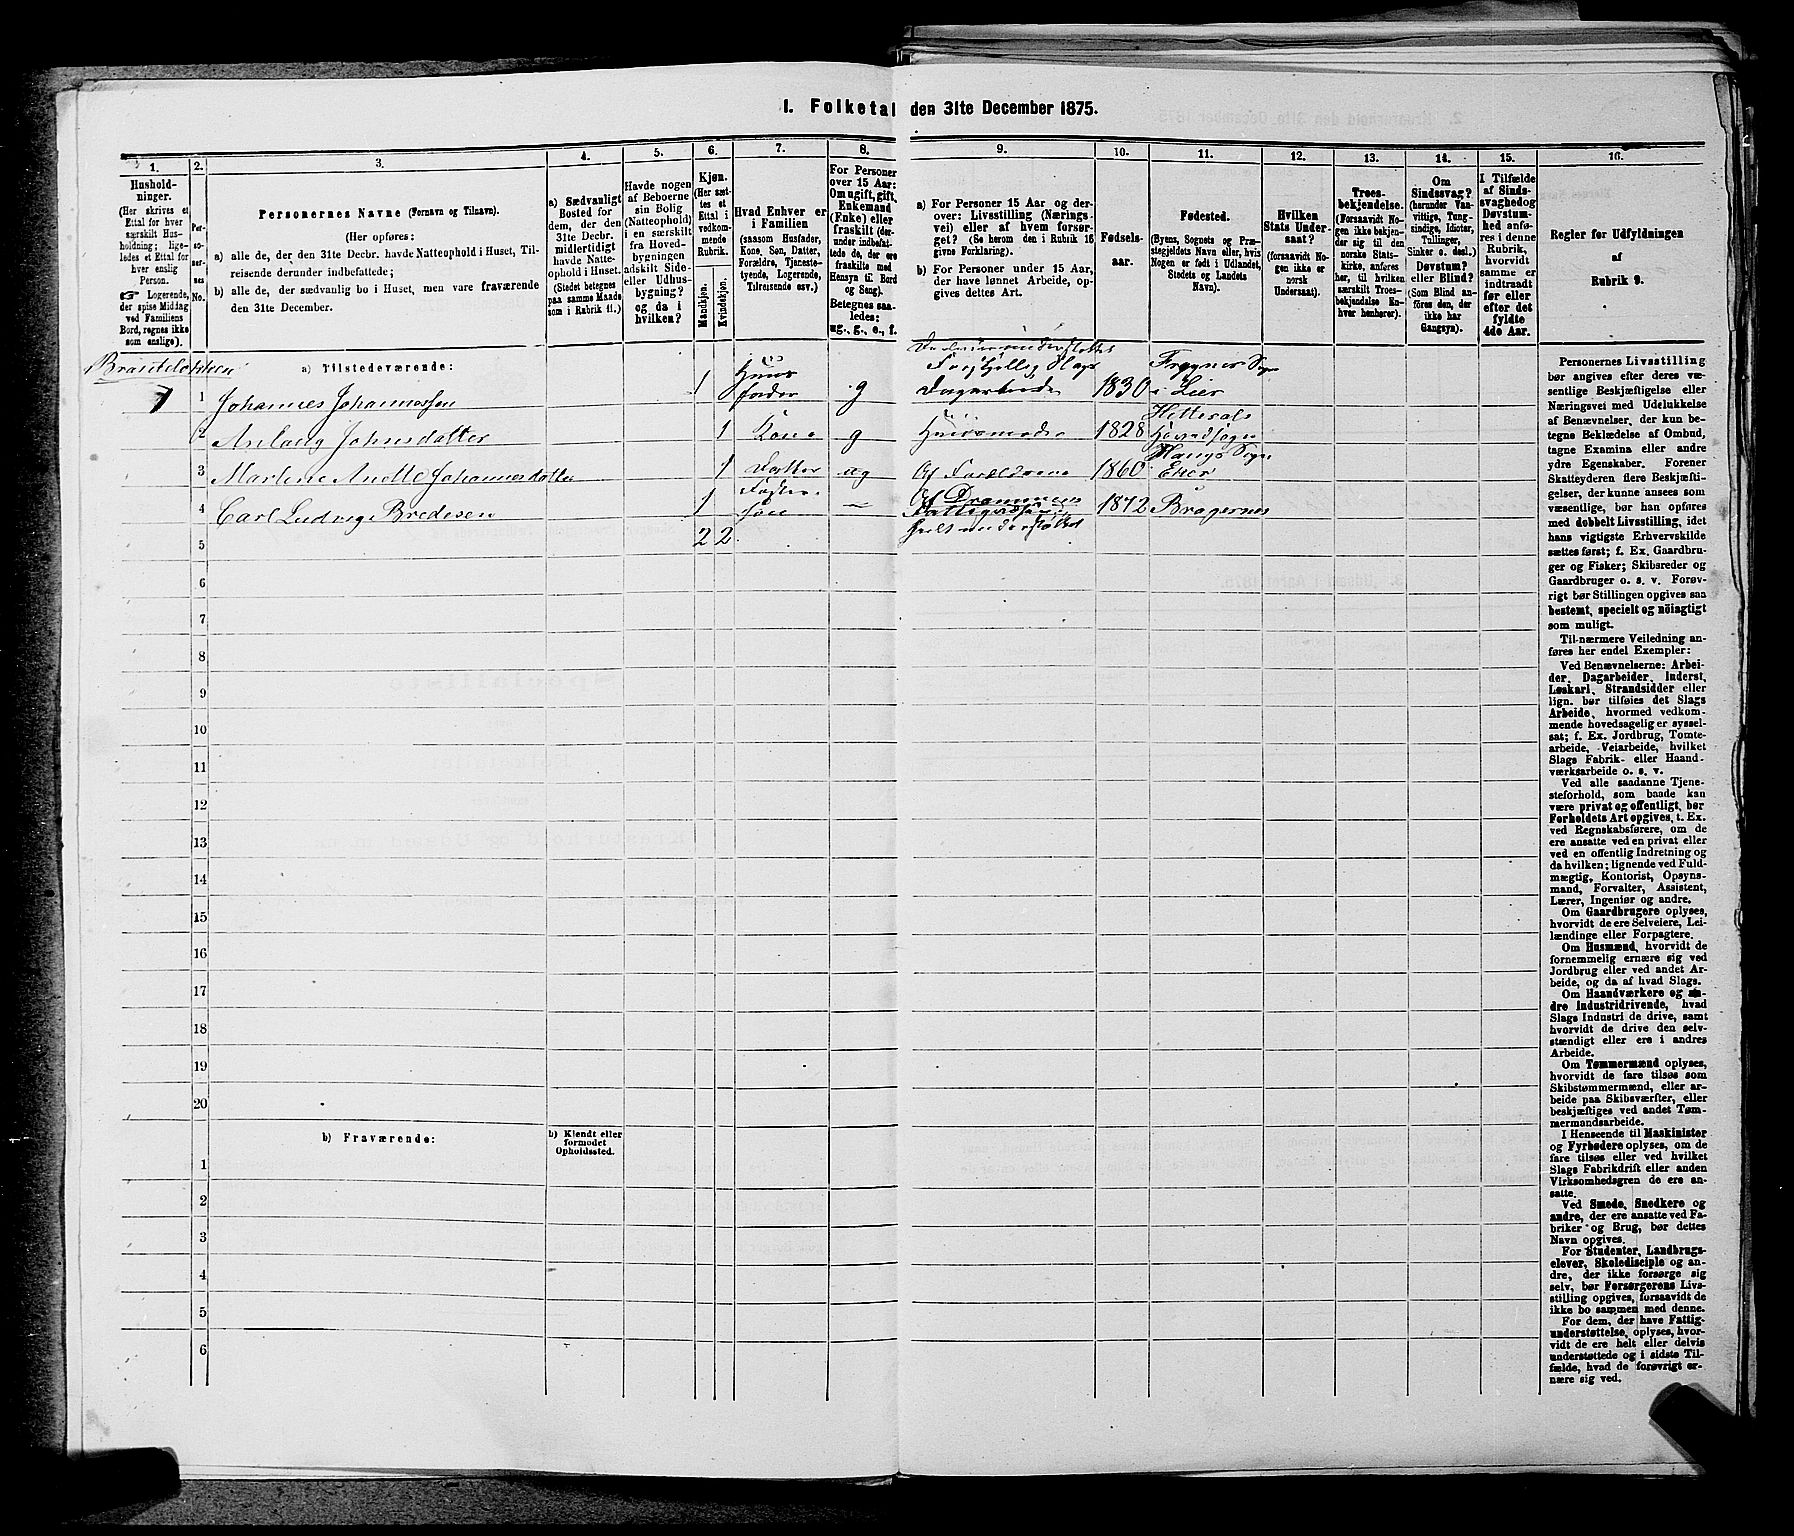 I. Folketal den 31te December 1875.
1.
2.
3.
4.
5.
6.
7.
8.
9.
10.
11.
12.
13.
14.
15.
16.
Hushold-
ninger.
(Her skrives et
Ettal for hver
særskilt Hus-
holdning; lige-
ledes et Ettal for
hver enslig
Person.
☞ Logerende,
der spise Middag
ved Familiens
Bord, regnes ikke
som enslige).
Per-
so-
ner-
nes
No.
Personernes Navne (Fornavn og Tilnavn).
(Her opføres:
a) alle de, der den 31te Decbr. havde Natteophold i Huset, Til-
reisende derunder indbefattede;
b) alle de, der sædvanlig bo i Huset, men vare fraværende
den 31te December.
a) Sædvanligt
Bosted for
dem, der den
31te Decbr.
midlertidigt
havde Natte-
ophold i Huset.
(Stedet betegnes
paa samme Maade
som i Rubrik 11.)
Havde nogen
af Beboerne
sin Bolig
(Natteophold)
i en særskilt
fra Hoved-
bygningen
adskilt Side-
eller Udhus-
bygning?
og da i
hvilken?
Kjøn.
(Her sæt-
tes et
Ettal i
vedkom-
mende
Rubrik.
Mandkjøn.
Kvindekjøn.
Hvad Enhver er
i Familien
(saasom Husfader,
Kone, Søn, Datter,
Forældre, Tjeneste-
tyende, Logerende,
Tilreisende osv.)
For Personer
over 15 Aar:
Om ugift, gift,
Enkemand
(Enke) eller
fraskilt (der-
under indbefat-
tede de, der ere
fraskilte med
Hensyn til Bord
og Seng).
Betegnes saa-
ledes:
ug., g., e., f.
a) For Personer 15 Aar og der-
over: Livsstilling (Nærings-
vei) eller af hvem forsør-
get? (Se herom den i Rubrik 16
givne Forklaring).
b) For Personer under 15 Aar,
der have lønnet Arbeide, op-
gives dettes Art.
Fødsels-
aar.
Fødested.
(Byens, Sognets og Præ-
stegjeldets Navn eller, hvis
Nogen er født i Udlandet,
Stedets og Landets
Navn).
Hvilken
Stats Under-
saat?
(forsaavidt No-
gen ikke er
norsk
Undersaat).
Troes-
bekjendelse.
(Forsaavidt No-
gen ikke bekjen-
der sig til den
norske Stats-
kirke, anføres
her, til hvilken
særskilt Troes-
bekjendelse En-
hver henhører).
Om
Sindssvag?
(herunder Van-
vittige, Tung-
sindige, Idioter,
Tullinger,
Sinker o. desl.).
Døvstum?
eller Blind?
(Som Blind an-
føres den, der
ikke har
Gangsyn).
I Tilfælde
af Sinds-
svaghed og
Døvstum-
hed anfø-
res i denne
Rubrik,
hvorvidt
samme er
indtraadt
før eller
efter det
fyldte
4de Aar.
Regler for Udfyldningen
af
Rubrik 9.
a) Tilstedeværende:
1 Johannes Johannessen 1 Huus fader g Dagarbeider 1830 i Lier
2 1 Kone g 1828
3 1 Datter ug 1860 Eker
4 Carl Ludvig Bredesen 1 Foster søn — 1872 Bragernes
5 2 2
6
7
8
9
10
11
12
13
14
15
16
17
18
19
20
b) Fraværende:
b) Kjendt eller
formodet
Opholdssted.
1
2
3
4
5
6
Personernes Livsstilling
bør angives efter deres væ-
sentlige Beskjæftigelse eller
Næringsvei med Udelukkelse
af Benævnelser, der kun be-
tegne Beklædelse af Ombud,
tagne Examina eller andre
ydre Egenskaber. Forener
Skatteyderen flere Beskjæfti-
gelser, der kunne ansees som
væsentlige, bør han opføres
med dobbelt Livsstilling, idet
hans vigtigste Erhvervskilde
sættes først; f. Ex. Gaardbru-
ger og Fisker; Skibsreder og
Gaardbruger o. s. v. Forøv-
rigt bør Stillingen opgives saa
bestemt, specielt og nöiagtigt
som muligt.
Til nærmere Veiledning an-
føres her endel Exempler:
Ved Benævnelserne: Arbei-
der, Dagarbeider, Inderst,
Løskarl, Strandsidder eller
lign. bør tilføies det Slags
Arbeide, hvormed vedkom-
mende hovedsagelig er syssel-
sat; f. Ex. Jordbrug, Tomte-
arbeide, Veiarbeide, hvilket
Slags Fabrik- eller Haand-
værksarbeide o. s. v.
Ved alle saadanne Tjene-
steforhold, som baade kan
være privat og offentligt, bør
Forholdets Art opgives, t. Ex.
ved Regnskabsførere, om de
ere ansatte ved en privat eller
ved en offentlig Indretning og
da hvilken; lignende ved Fuld-
mægtig, Kontorist, Opsyns-
mand, Forvalter, Assistent,
Lærer, Ingeniør og andre.
Om Gaardbrugere oplyses,
hvorvidt de ere Selveiere, Lei-
lændinge eller Forpagtere.
Om Husmænd, hvorvidt de
fornemmelig ernære sig ved
Jordbrug eller ved andet Ar-
beide, og da af hvad Slags.
Om Haandværkere og an-
dre Industridrivende, hvad
Slags Industri de drive, samt
hvorvidt de drive den selv-
stændigt eller ere i andres
Arbeide.
Om Tømmermænd oplyses,
hvorvidt de fare tilsøs som
Skibstømmermænd, eller ar-
beide paa Skibsværfter, eller
beskjæftiges ved andet Tøm-
mermandsarbeide.
I Henseende til Maskinister
og Fyrbødere oplyses, om de
fare tilsøs eller ved hvilket
Slags Fabrikdrift eller anden
Virksomhedsgren de ere an-
satte.
Ved Smede, Snedkere og
andre, der ere ansatte ved Fa-
briker og Brug, bør dettes
Navn opgives.
For Studenter, Landbrugs-
elever, Skoledisciple og an-
dre, der ikke forsørge sig
selv, bør Forsørgerens Livs-
stilling opgives, forsaavidt de
ikke bo sammen med denne.
For dem, der have Fattig-
understøttelse, oplyses, hvor-
vidt de ere helt eller delvis
understøttede og i sidste Til-
fælde, hvad de forøvrigt er-
nære sig ved.